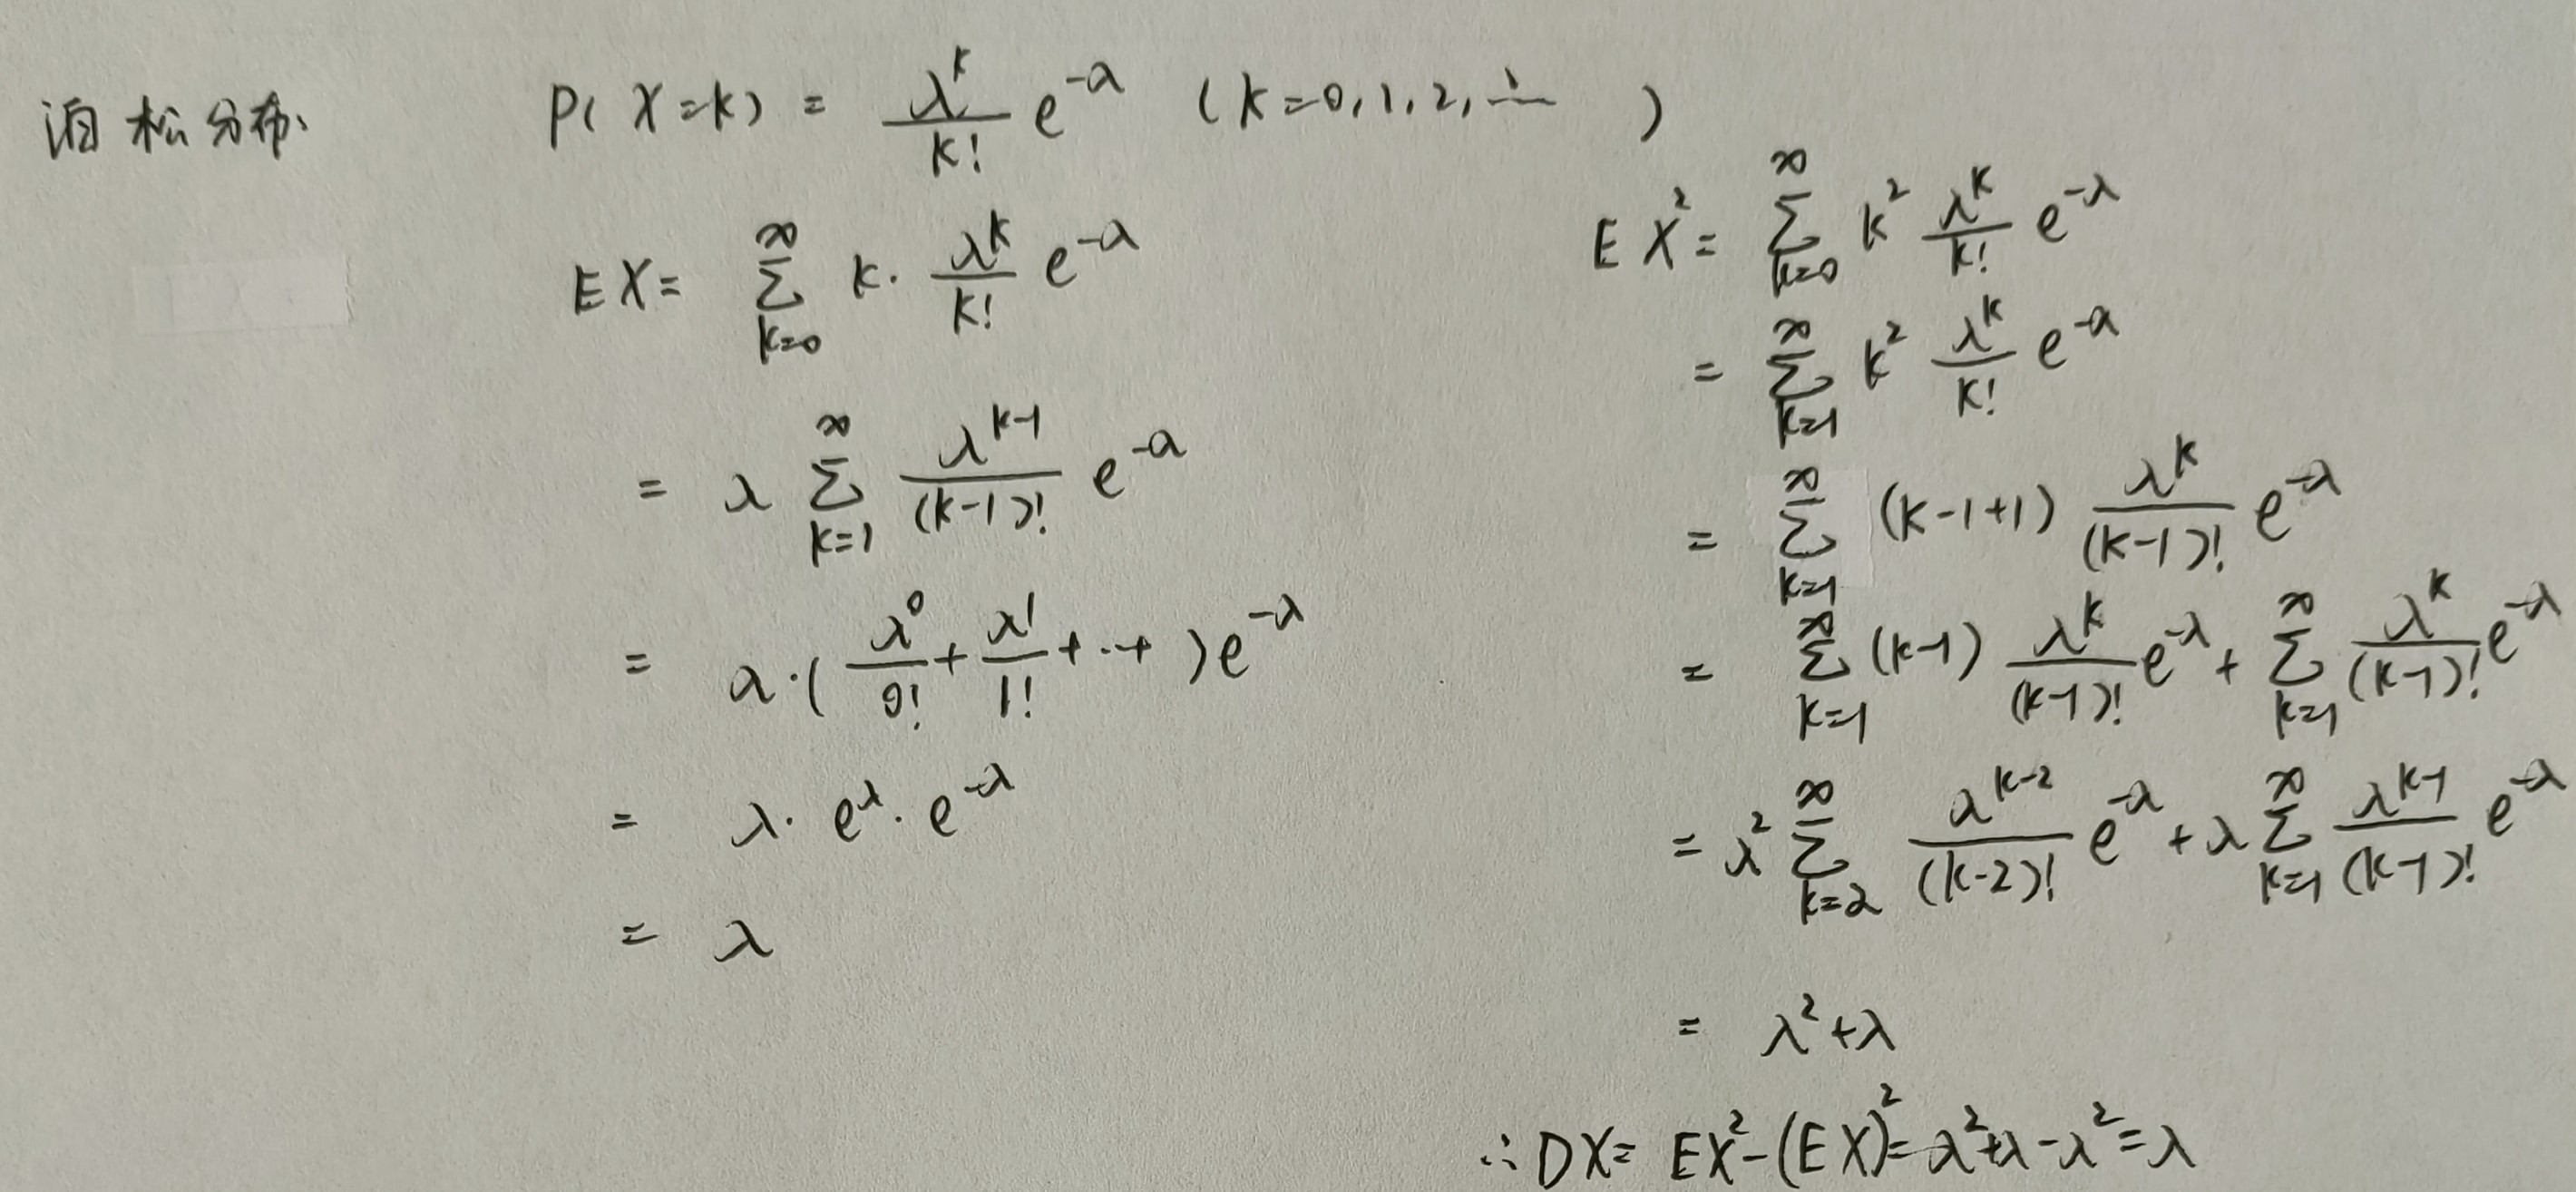 泊松分布. P(X=k) = \frac{λ^k}{k!} e^{-λ} (k=0,1,2,…)
EX = \sum_{k=0}^{∞} k·\frac{λ^k}{k!} e^{-λ}
= λ \sum_{k=1}^{∞} \frac{λ^{k-1}}{(k-1)!} e^{-λ}
= λ·(\frac{λ^0}{0!}+\frac{λ^1}{1!}+…+)e^{-λ}
= λ·e^{λ}·e^{-λ}
= λ
EX^2 = \sum_{k=0}^{∞} k^2 \frac{λ^k}{k!} e^{-λ}
= \sum_{k=1}^{∞} k^2 \frac{λ^k}{k!} e^{-λ}
= \sum_{k=1}^{∞} (k-1+1) \frac{λ^k}{(k-1)!} e^{-λ}
= \sum_{k=1}^{∞} (k-1) \frac{λ^k}{(k-1)!} e^{-λ} + \sum_{k=1}^{∞} \frac{λ^k}{(k-1)!} e^{-λ}
= λ^2 \sum_{k=2}^{∞} \frac{λ^{k-2}}{(k-2)!} e^{-λ} + λ \sum_{k=1}^{∞} \frac{λ^{k-1}}{(k-1)!} e^{-λ}
= λ^2+λ
∴ DX = EX^2-(EX)^2 = λ^2+λ-λ^2 = λ